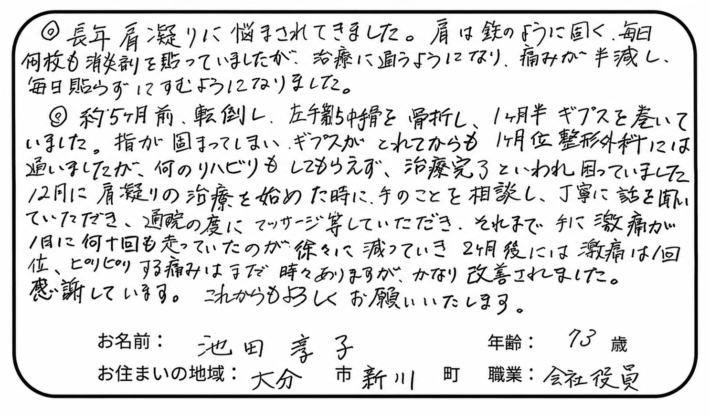 ◎ 長年 肩凝りに 悩まされてきました。肩は 鉄のように固く、毎日
何枚も 消炎剤を 貼っていましたが、治療に通うようになり、痛みが 半減し、
毎日貼らずにすむようになりました。
◎ 約5ヶ月前、転倒し、左手第5中手骨を 骨折し、1ヶ月半 ギプスを巻いて
いました。指が 固まってしまい、ギプスが とれてからも 1ヶ月位 整形外科には
通いましたが、何のリハビリも してもらえず、治療完了といわれ 困っていました
12月に 肩凝りの 治療を始めた時に、手のことを 相談し、丁寧に 話を聞い
ていただき、通院の度に マッサージ等していただき、それまで 手に 激痛が
1日に何十回も走っていたのが 徐々に 減っていき 2ヶ月後には 激痛は1回
位、ピリピリする痛みは まだ 時々ありますが、かなり 改善されました。
感謝しています。これからもよろしく お願いいたします。
お名前: 池田 享子 年齢: 73 歳
お住まいの地域: 大分 市 新川 町 職業: 会社役員